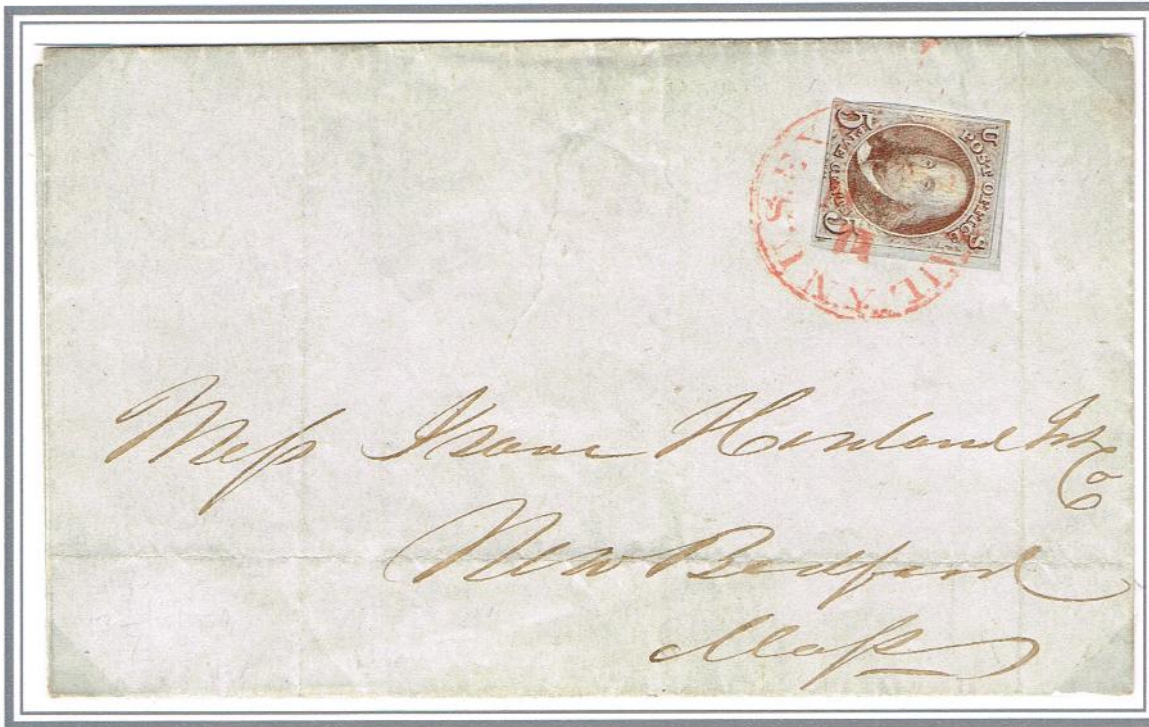 U S
POST OFFICE
5 5
Mess Isaac Howland Jr &
Co
New Bedford
Mass